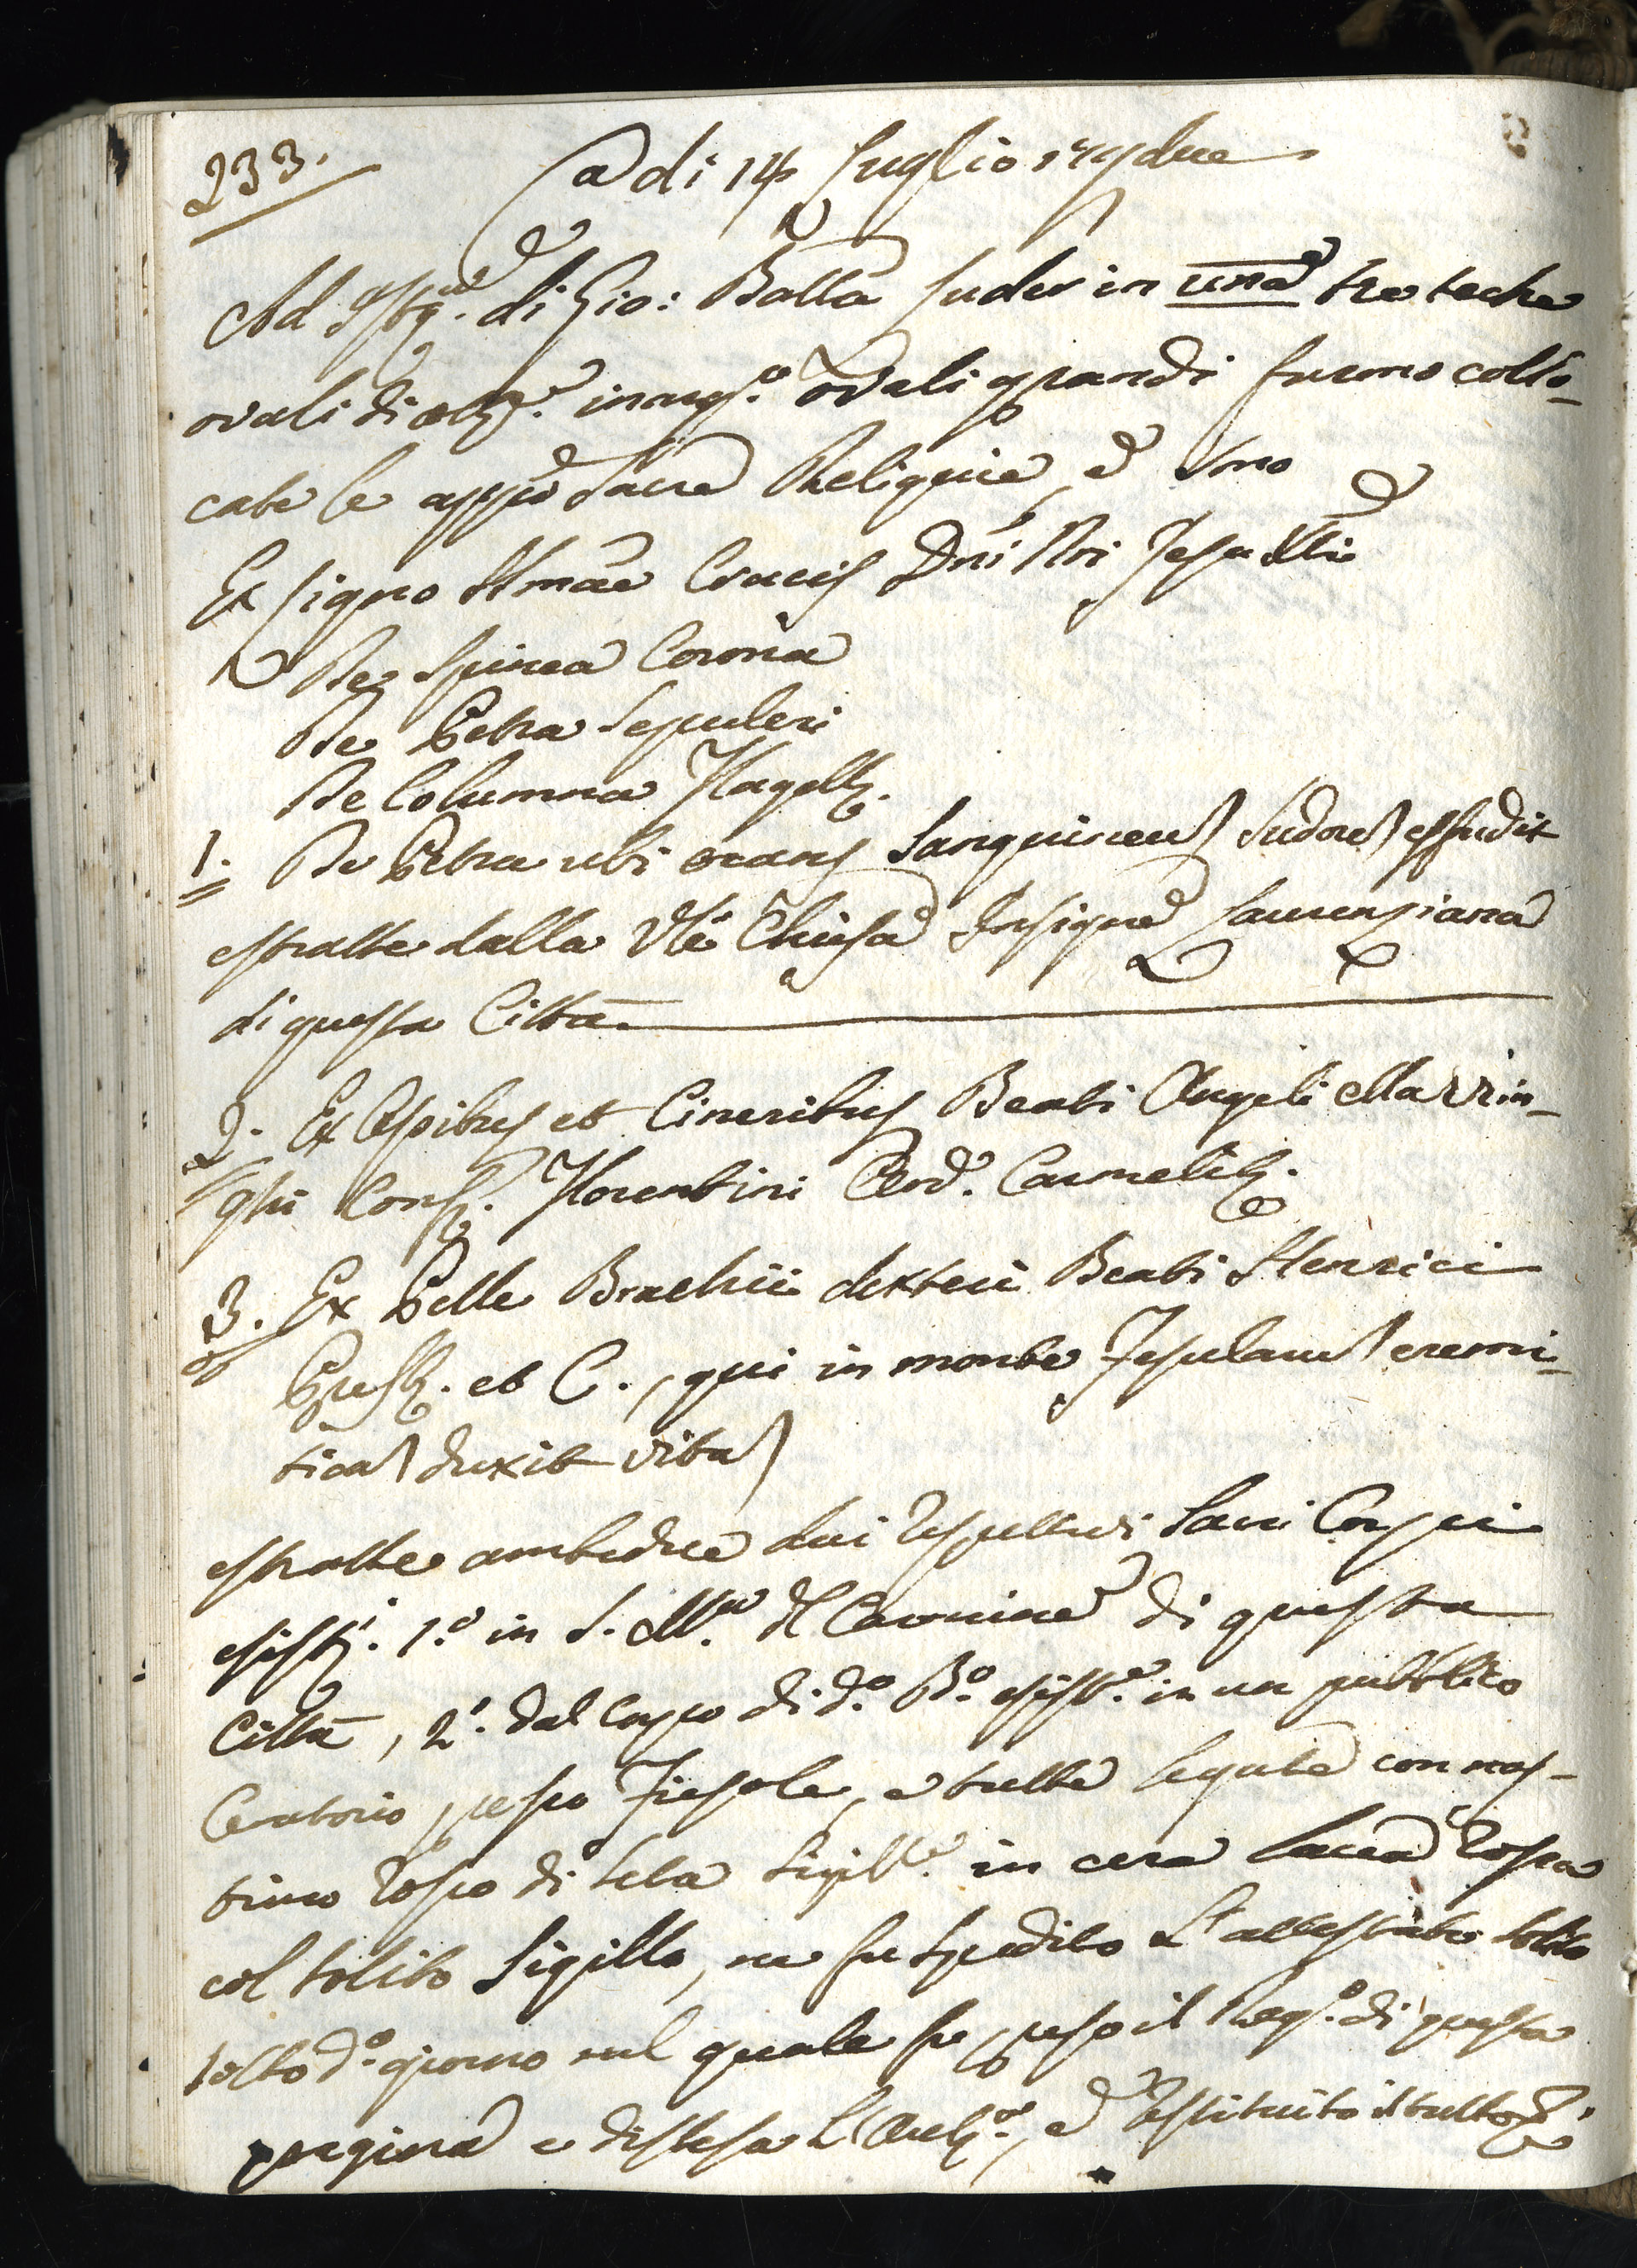 233.
a di 14 Luglio 179due
Ad Istza. di Gio: Batta in una tre teche
ovali di in ovali grandi furono collo-
cate le appiè Sacre Reliquie, e Sono
Ex Ligno SSmae Crucis Dni Nri Jesu Xti
De Spinea Corona
De Petra Sepulcri
De Columna Flagellis.
1. De Petra ubi orans Sanguineum Sudorem effudit
estratte dalla Ve Chiesa Insigne Laurenziana
di questa Città
2. Ex Ossibus et Cineribus Beati Angeli Mazzin-
ghi Confis. Florentini Ord. Carmelitis.
3. Ex Pelle Brachii dexteri Beati Henrici
Presbis. et C., qui in monte Fesulano eremi-
ticam duxit vitam
estratte ambedue dai respettivi Sacri Corpi
esisti. 1.° in S. Ma. del Carmine di questa
Città, 2.° dal Corpo di do. Bo. esiste. in un pubblico
Oratorio presso Fiesole, e tutte legate con nas-
trino rosso di seta sigille. in cera lacca rossa
col solito Sigillo, ne fu spedito L'attestato solito
sotto do. giorno nel quale fu preso il Rego. di questa
pagina e distesa L' e restituito il tutto